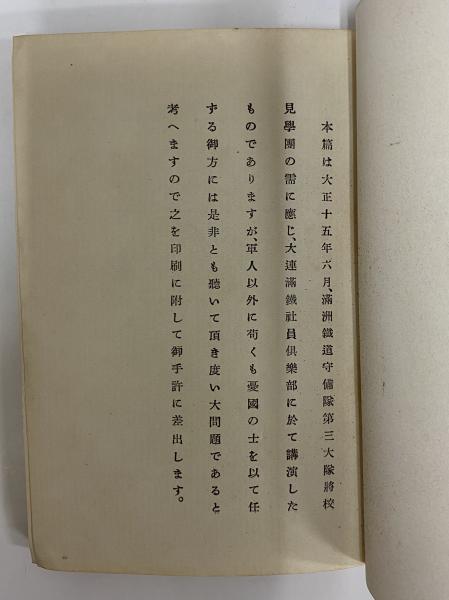 本篇は大正十五年六月、滿洲鐵道守備隊第三大隊將校
見學團の需に應じ、大連滿鐵社員俱樂部に於て講演した
ものでありますが、軍人以外に苟くも憂國の士を以て任
ずる御方には是非とも聽いて頂き度い大問題であると
考へますので之を印刷に附して御手許に差出します。